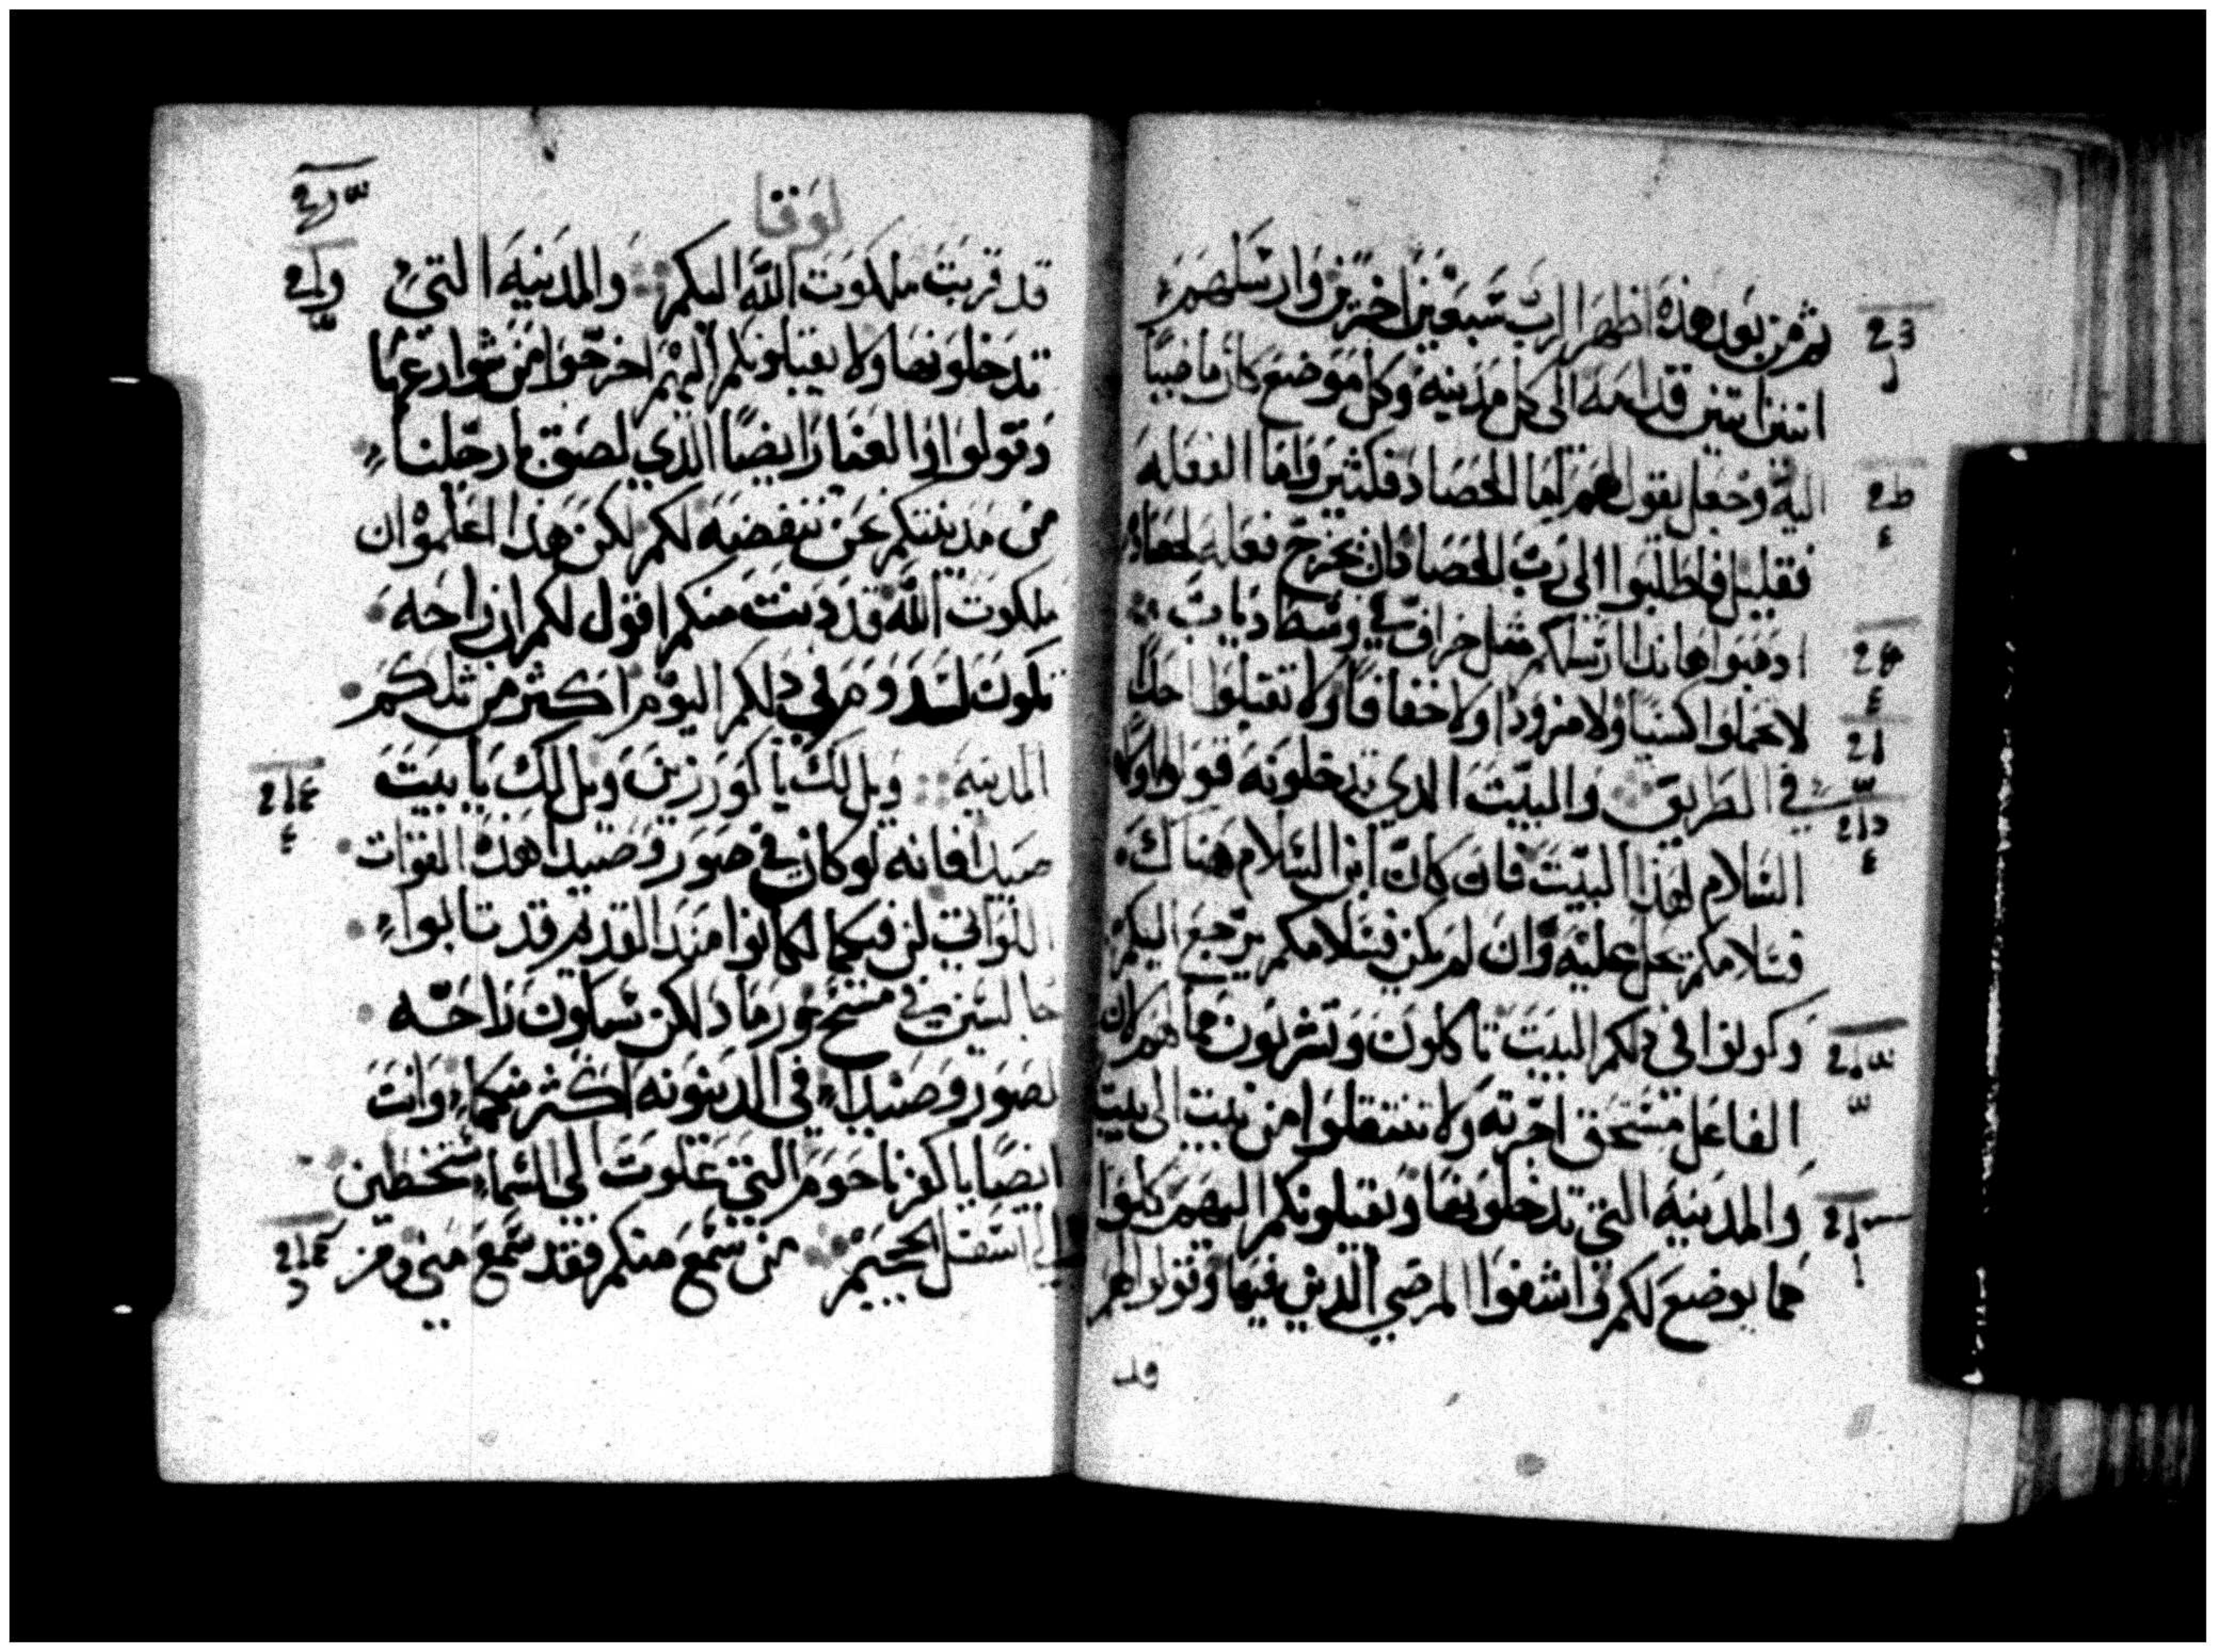 ثم من بعد هذه اظهر الرب سبعين اخرين وارسلهم
اثنين اثنين قدامه الى كل مدينه وكل موضع كان ماضيا
اليه وجعل يقول لهم اما الحصاد فكثير واما الفعله
فقليل فاطلبوا الى رب الحصاد بان يخرج فعله لحصاده
اذهبوا هانذا ارسلكم مثل خراف في وسط دياب
لا تحملوا كيسا ولا مزودا ولا خفافا ولا تقبلوا احدا
في الطريق والبيت الدي تدخلونه قولوا اولا
السلام لهذا البيت فان كان ابن السلام هناك
فسلامكم يحل عليه وان لم يكن فسلامكم يرجع اليكم
وكونوا في دلكم البيت تاكلون وتشربون مما لهم لان
الفاعل مستحق اجرته ولا تنتقلوا من بيت الى بيت
والمدينه التي تدخلونها ويقبلونكم اليهم كلوا
مما يوضع لكم اشفوا المرضي الذين فيها وقولوا لهم
قد
لوقا
قد قربت ملكوت الله اليكم والمدينه التي
تدخلونها ولا يقبلونكم اليهم اخرجوا من شوارعها
وقولوا ان الغبار ايضا الذي لصق بارجلنا
من مدينتكم نحن ننفضه لكم لكن هذا اعلموا ان
ملكوت الله قد دنت منكم اقول لكم ان راحه
تكون لسدوم في دلكم اليوم اكثر من تلكم
المدينه ويل لك يا كورزين ويل لك يا بيت
صيدا فانه لو كان في صور وصيدا هذه القوات
اللواتي كن فيكما لكانوا منذ القديم قد تابوا
جالسين في مسح ورماد لكن ستكون راحه
لصور وصيدا في الدينونه اكثر منكما وانت
ايضا يا كفرناحوم التي علوت الى السماء ستحطين
الى اسفل الجحيم من سمع منكم فقد سمع مني ومن